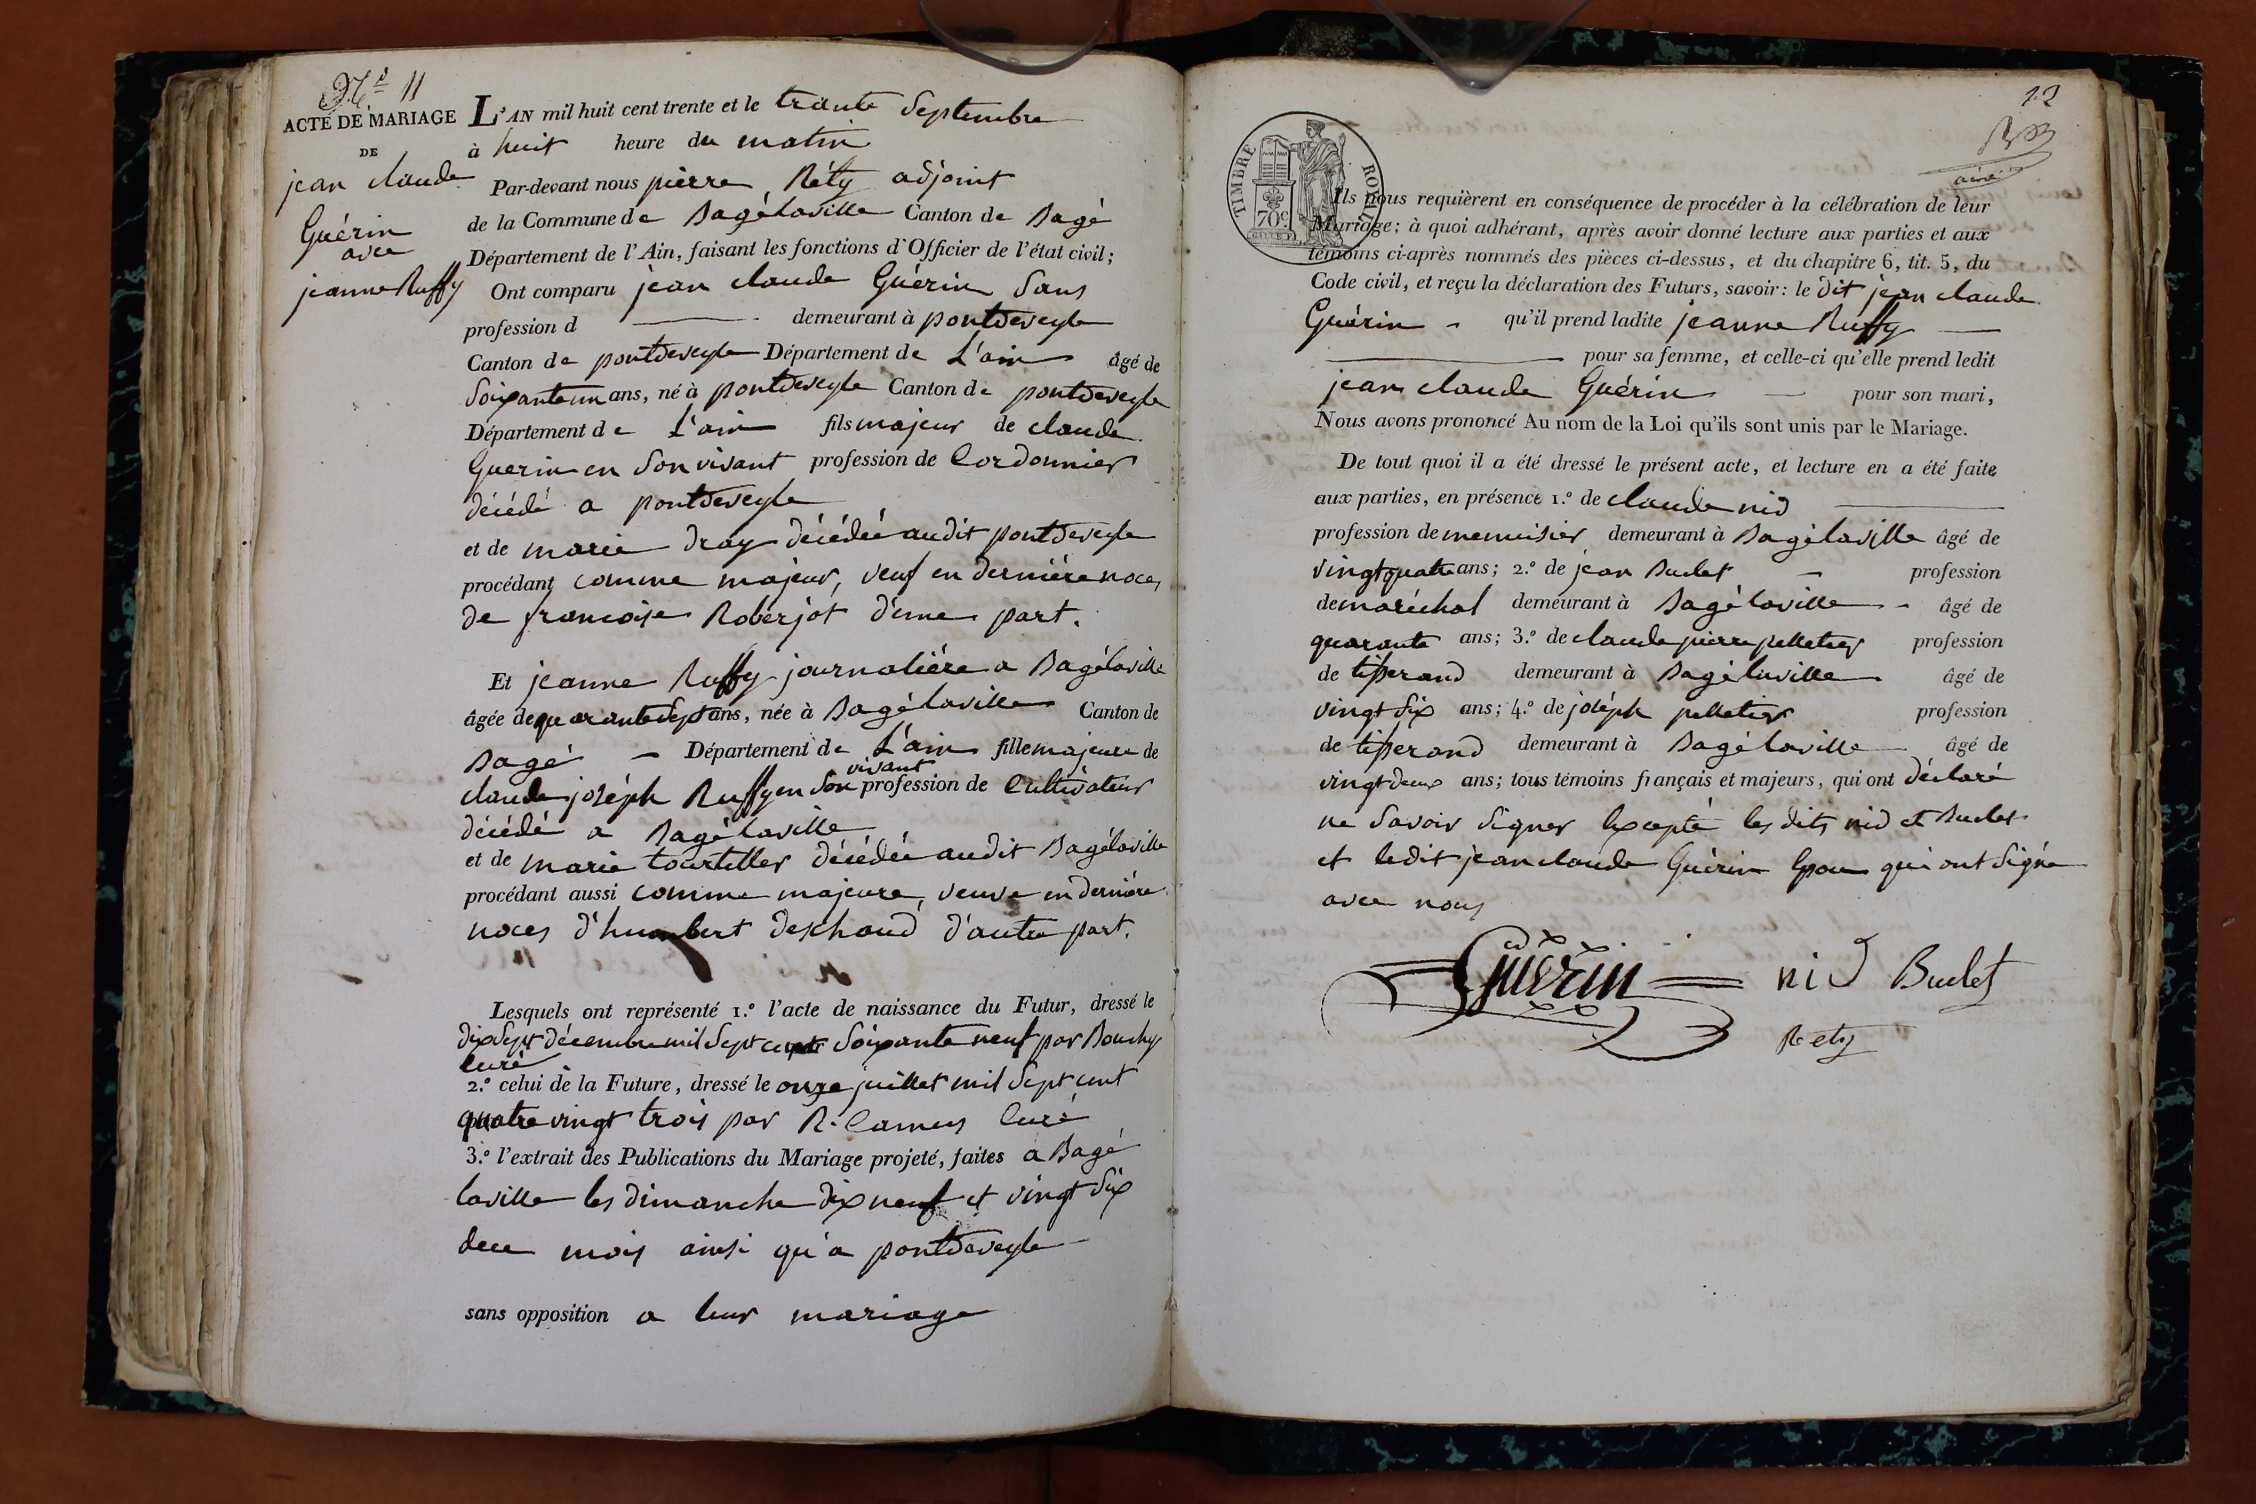 N.° 11
ACTE DE MARIAGE
DE
jean claude
Guérin
avec
jeanne Ruffy
L'AN mil huit cent trente et le trante Septembre
à huit heure du matin
Par-devant nous pierre Réty adjoint
de la Commune de Bagélaville Canton de Bagé
Département de l'Ain, faisant les fonctions d'Officier de l'état civil;
Ont comparu jean claude Guérin Sans
profession d demeurant à pontdeveyle
Canton de pontdeveyle Département de L'ain âgé de
Soixanteun ans, né à pontdeveyle Canton de pontdeveyle
Département de L'ain fils majeur de claude
Guerin en Son vivant profession de Cordonnier
décédé a pontdeveyle
et de marie dray décédée audit pontdeveyle
procédant comme majeur, veuf en derniére noces
de francoise Roberjot d'une part.
Et jeanne Ruffy journaliére a Bagélaville
âgée de quarante Sept ans, née à Bagélaville Canton de
Bagé Département de L'ain fille majeure de
claude joséph Ruffy en Son vivant profession de Cultivateur
décédé a Bagélaville
et de marie tourtiller décédée audit Bagélaville
procédant aussi comme majeure, veuve en derniére
noces d'humbert deschaud d'autre part.
Lesquels ont représenté 1.° l'acte de naissance du Futur, dressé le
dix Sept décembre mil Sept cent Soixante neuf par Bouchy
Curé
2.° celui de la Future, dressé le onze juillet mil Sept cent
quatre vingt trois par R. Camus Curé
3.° l'extrait des Publications du Mariage projeté, faites a Bagé
laville les dimanche dix neuf et vingt Six
dece mois ainsi qu'a pontdeveyle
sans opposition a leur mariage
12
TIMBRE ROYAL
70c
Ils nous requièrent en conséquence de procéder à la célébration de leur
Mariage; à quoi adhérant, après avoir donné lecture aux parties et aux
témoins ci-après nommés des pièces ci-dessus, et du chapitre 6, tit. 5, du
Code civil, et reçu la déclaration des Futurs, savoir: le dit jean claude
Guérin qu'il prend ladite jeanne Ruffy
pour sa femme, et celle-ci qu'elle prend ledit
jean claude Guérin pour son mari,
Nous avons prononcé Au nom de la Loi qu'ils sont unis par le Mariage.
De tout quoi il a été dressé le présent acte, et lecture en a été faite
aux parties, en présence 1.° de claude nid
profession de menuisier demeurant à Bagélaville âgé de
vingtquatre ans; 2.° de jean Buclet profession
de maréchal demeurant à Bagélaville âgé de
quarante ans; 3.° de claude pierre pelletier profession
de tisserand demeurant à Bagélaville âgé de
vingt Six ans; 4.° de joséph pelletier profession
de tisserand demeurant à Bagélaville âgé de
vingt deux ans; tous témoins français et majeurs, qui ont déclaré
ne Savoir Signer Excepté les dits nid et Buclet
et ledit jean claude Guérin Epou qui ont Signé
avec nous
Guérin nid Buclet
Rety